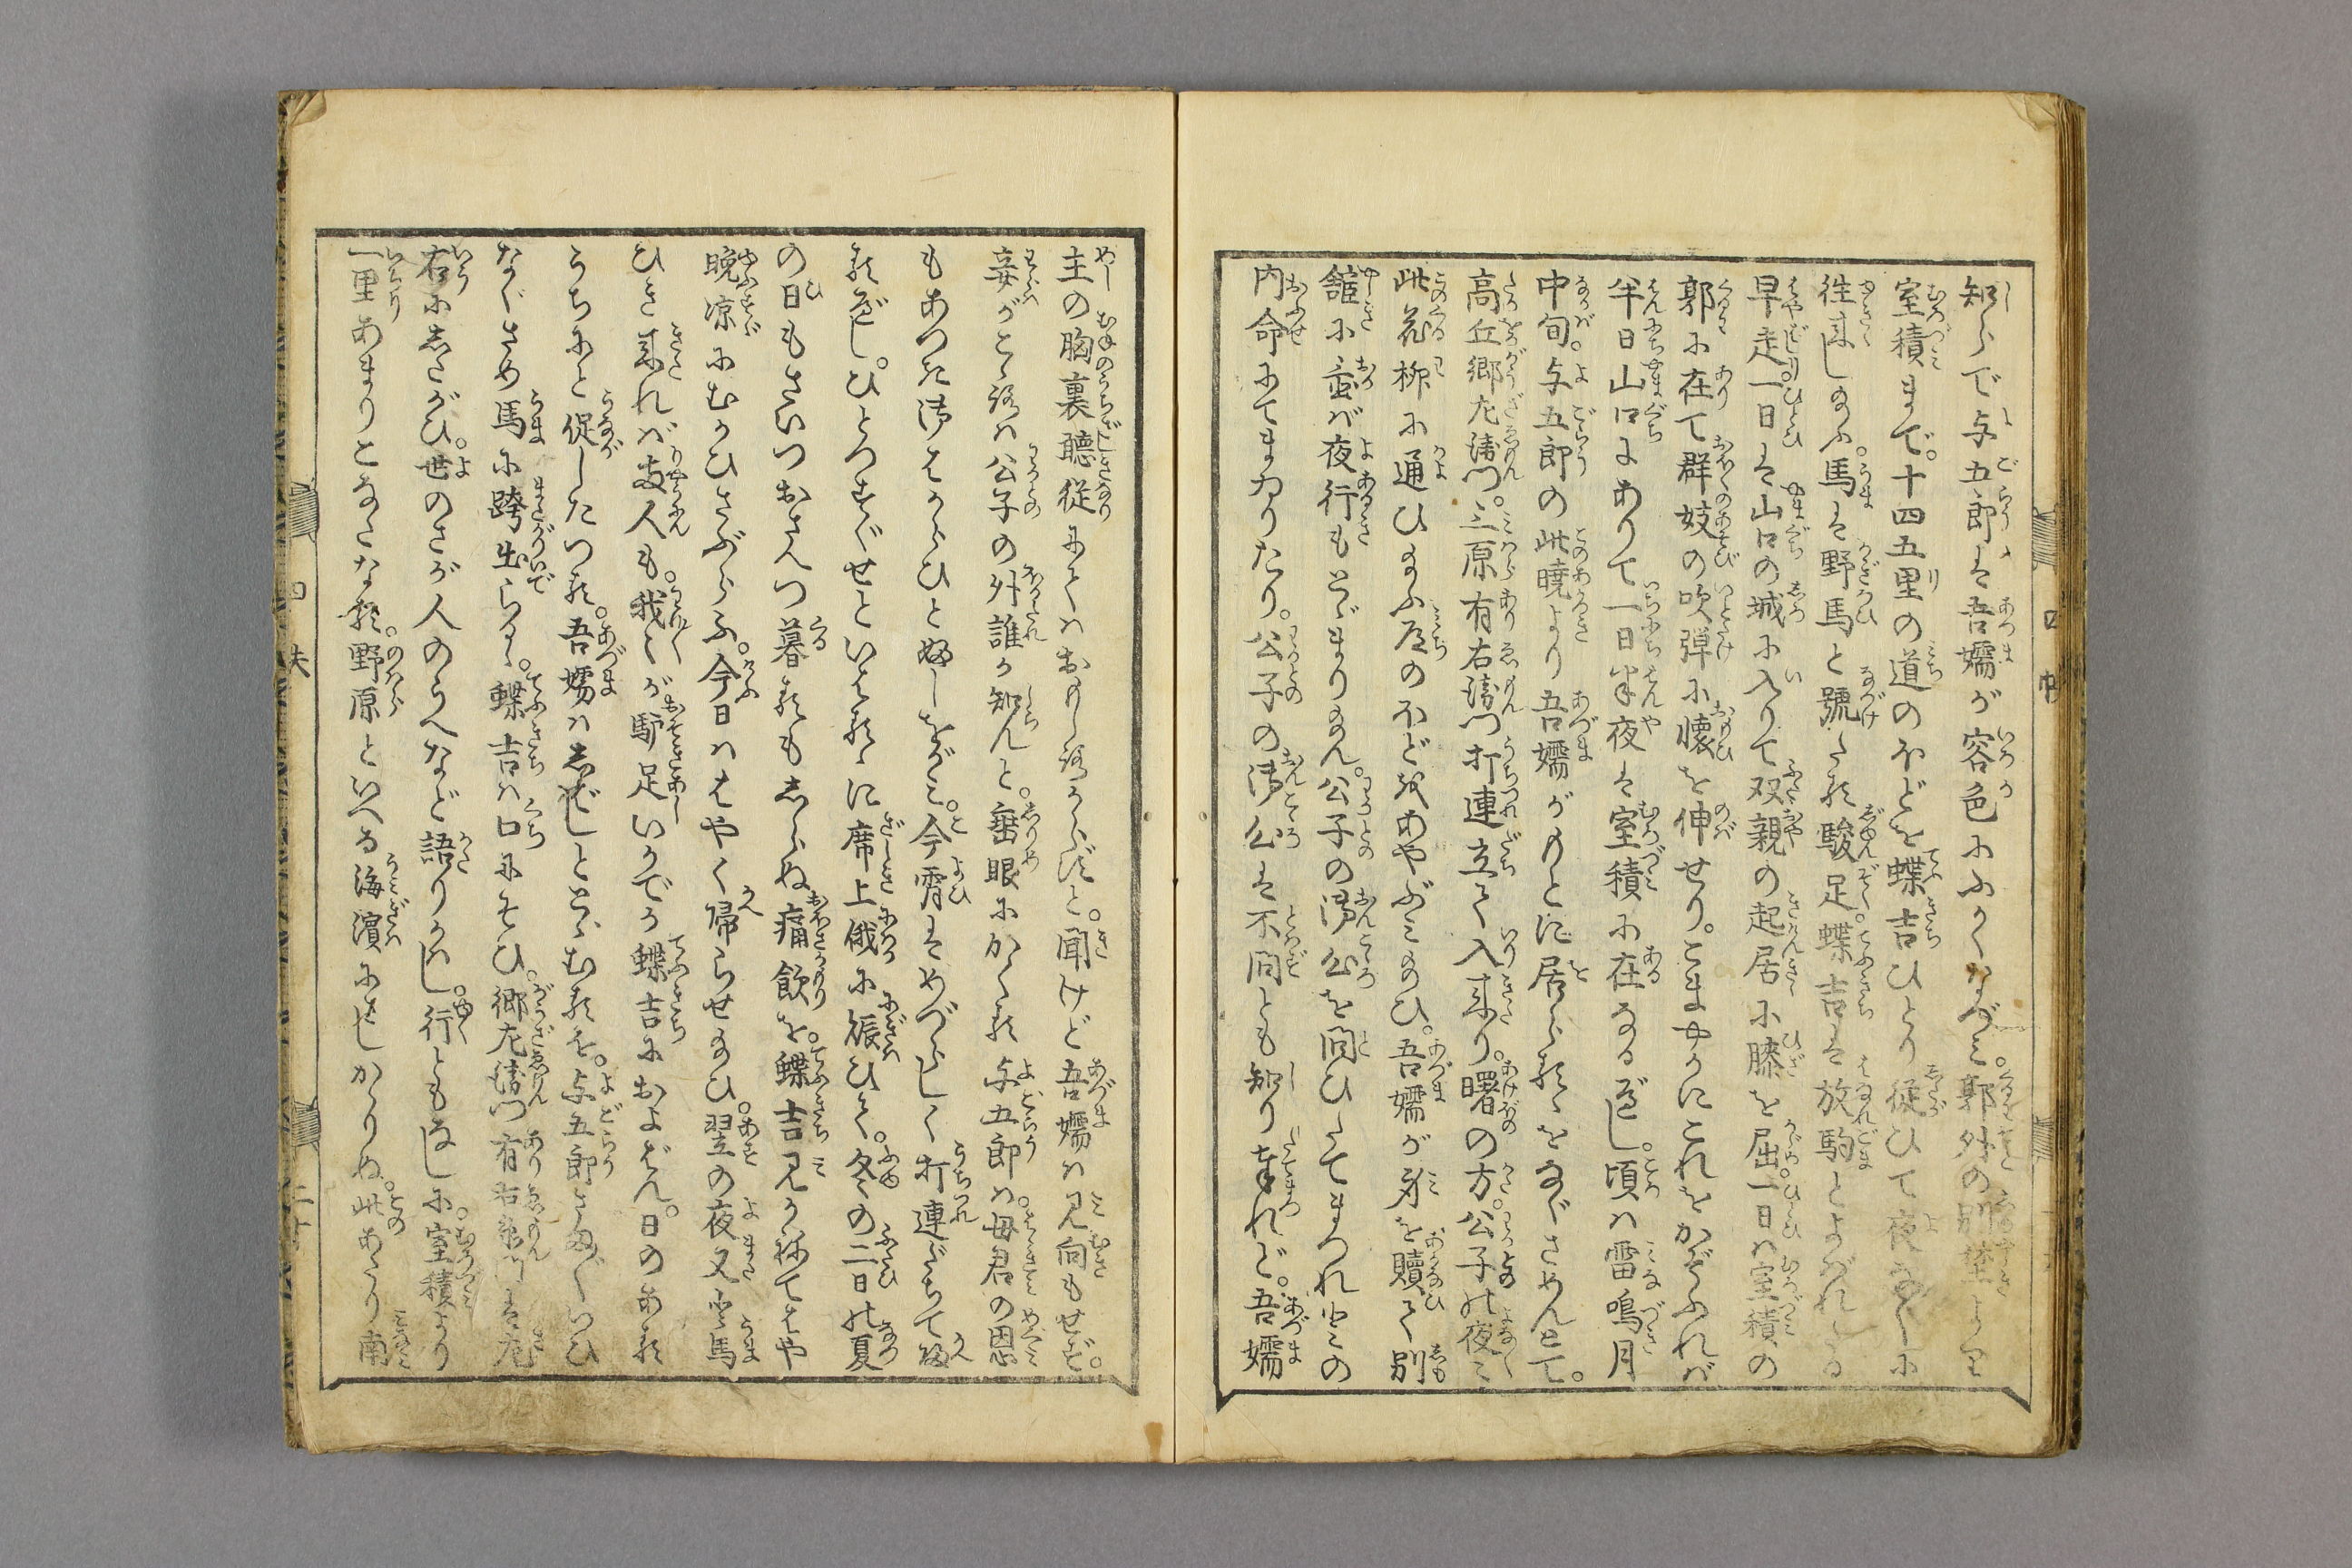 知らで与五郎は吾嬬が容色にふかくなづみ。郭外の別荘より
室積まで。十四五里の道のほどを蝶吉ひとり従ひて夜なく
往来し給ふ。馬は野馬と號たる駿足。蝶吉は放駒とよばれたる
早走。一日は山口の城に入りて双親の起居に膝を屈。一日は室積の
郭に在て群妓の吹弾に懐を伸せり。こまやかにこれをかぞふれば
半日山口にありて一日半夜は室積に在なるべし。頃は雷鳴月
中旬。与五郎の此暁より吾嬬がもとに居らるゝをなぐさめんとて。
高丘郷左衛門。三原有右衛門打連立て入来り。曙の方。公子の夜々
此花柳に通ひ給ふ道のほどをあやぶみ給ひ。吾嬬が身を贖て別
舘に蓄ば夜行もとゞまりなん。公子の御心を問ひたてまつれとの
内命にてまゐりたり。公子の御心は不問とも知り奉れど。吾嬬
主の胸裏聴従にてはおもしろからずと。聞けど吾嬬は見向もせず。
妾がこゝろは公子の外誰か知んと。垂眼にかくる与五郎は。母君の恩
もあつき御はからひと婦しをがみ。今霄はめづらしく打連だちて帰
るべし。ひとつすぐせといはるゝに席上俄に賑ひて。冬の二日の夏
の日もさいつおさへつ暮るもしらぬ痛飲を。蝶吉見かねてはや
晩凉にむかひさぶらふ。今日ははやく帰らせ給ひ。翌の夜又御馬
ひき来れば両人も。我々が駑足いかでか蝶吉におよばん。日のある
うちにと促したつる。吾嬬はしばしとゞむるを。与五郎さまざまいひ
なぐさめ馬に跨出らるゝ。蝶吉は口にそひ。郷左衛門有右衛門は左
右にしたがひ。世のさが人のうへなど語りかはし。行ともなしに。室積より
一里あまりこなたなる。野原といへる海濵にさしかゝりぬ。此あたり南